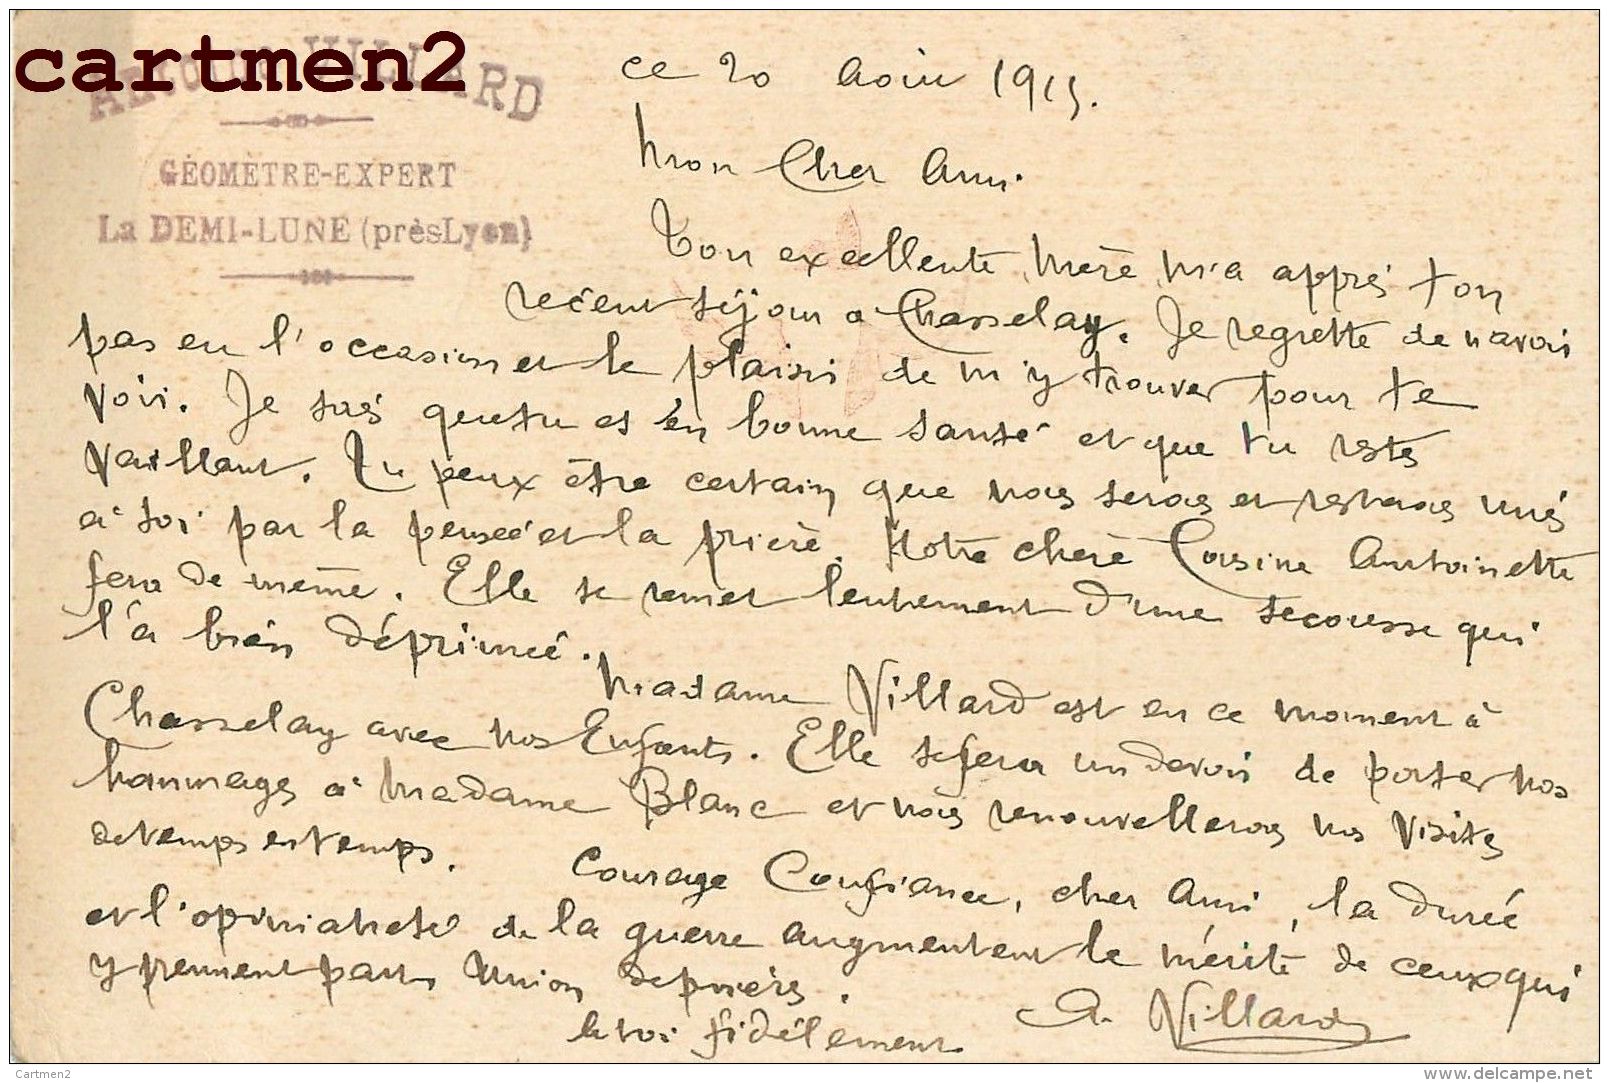 cartmen2
VILLARD
GÉOMÈTRE-EXPERT
La DEMI-LUNE (près Lyon)
ce 20 Aout 1915.
Mon Cher Ami.
Ton excellente mère m'a appris ton
récent séjour à Chasselay. Je regrette de n'avoir
pas eu l'occasion et le plaisir de m'y trouver pour te
voir. Je sais que tu es en bonne santé et que tu restes
vaillant. Tu peux être certain que nous serons et resterons unis
à toi par la pensée et la prière. Notre chère Cousine Antoinette
fera de même. Elle se remet lentement d'une secousse qui
l'a bien déprimée.
Madame Villard est en ce moment à
Chasselay avec nos Enfants. Elle se fera un devoir de porter nos
hommages à Madame Blanc et nous renouvellerons nos visites
de temps en temps.
Courage Confiance, cher Ami, la durée
et l'opiniatreté de la guerre augmentent le mérite de ceux qui
y prennent part. Union de prières.
à toi fidélement
A. Villard
Cartmen2
www.delcampe.net